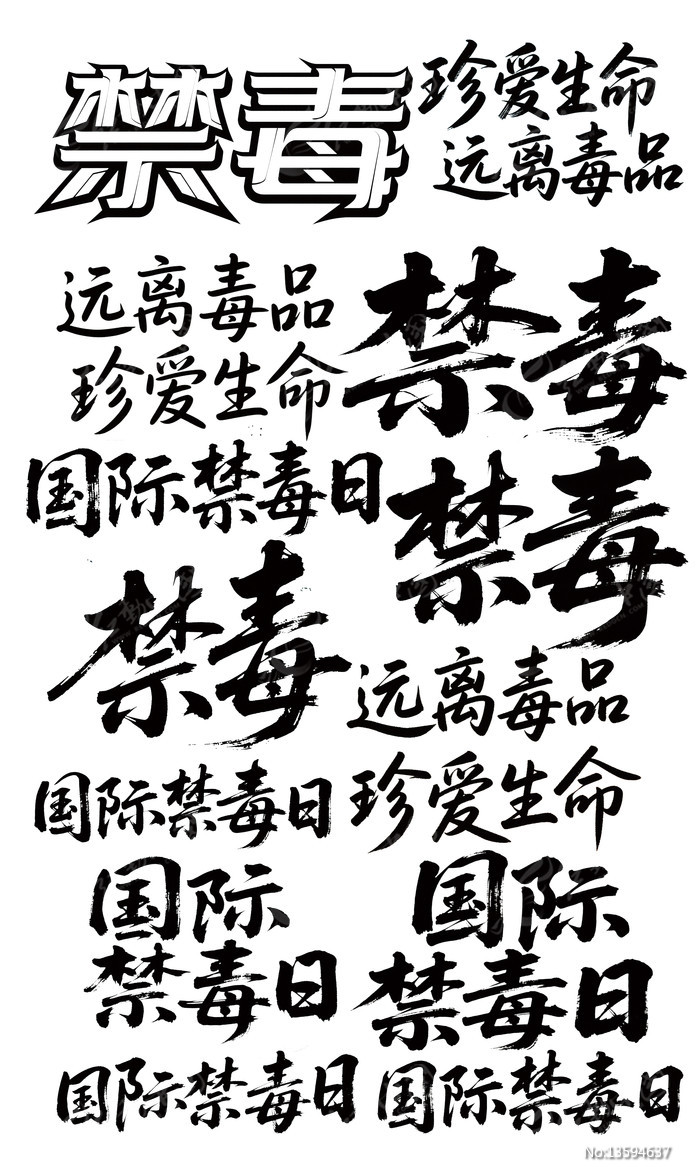 禁毒
珍爱生命
远离毒品
远离毒品
珍爱生命
禁毒
国际禁毒日
禁毒
禁毒
远离毒品
国际禁毒日
珍爱生命
国际
禁毒日
国际
禁毒日
国际禁毒日
国际禁毒日
No:13594637